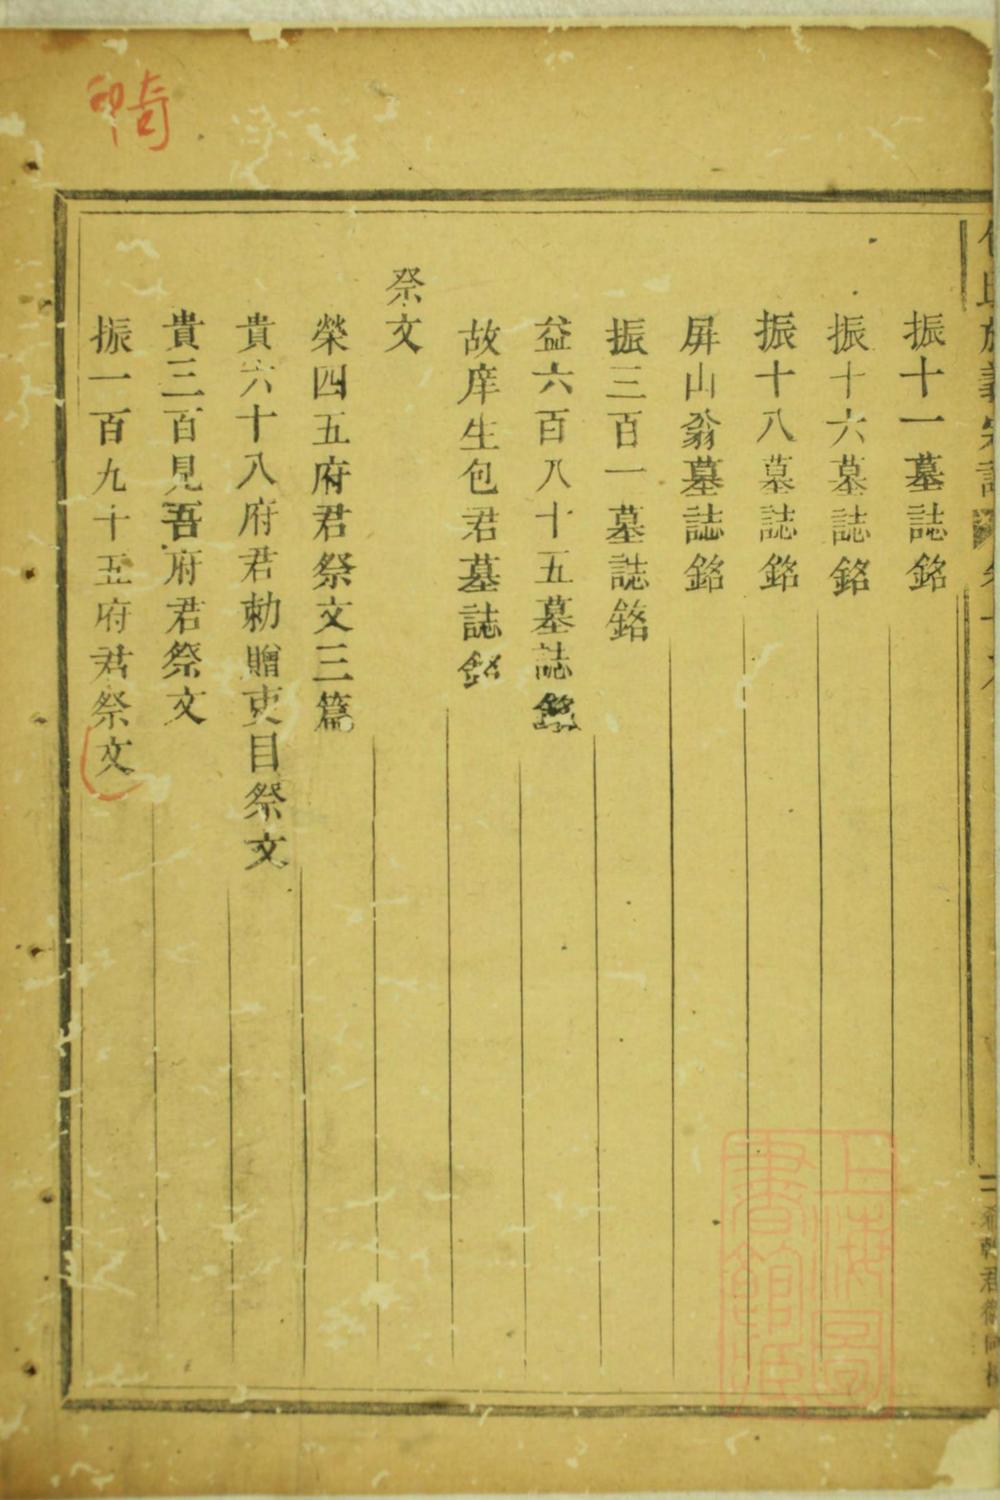 振十一墓誌銘
振十六墓誌銘
振十八墓誌銘
屏山翁墓誌銘
振三百一墓誌銘
益六百八十五墓誌銘
故庠生包君墓誌銘
祭文
榮四五府君祭文三篇
貴六十八府君勅贈吏目祭文
貴三百見吾府君祭文
振一百九十五府君祭文
上海圖
書館藏